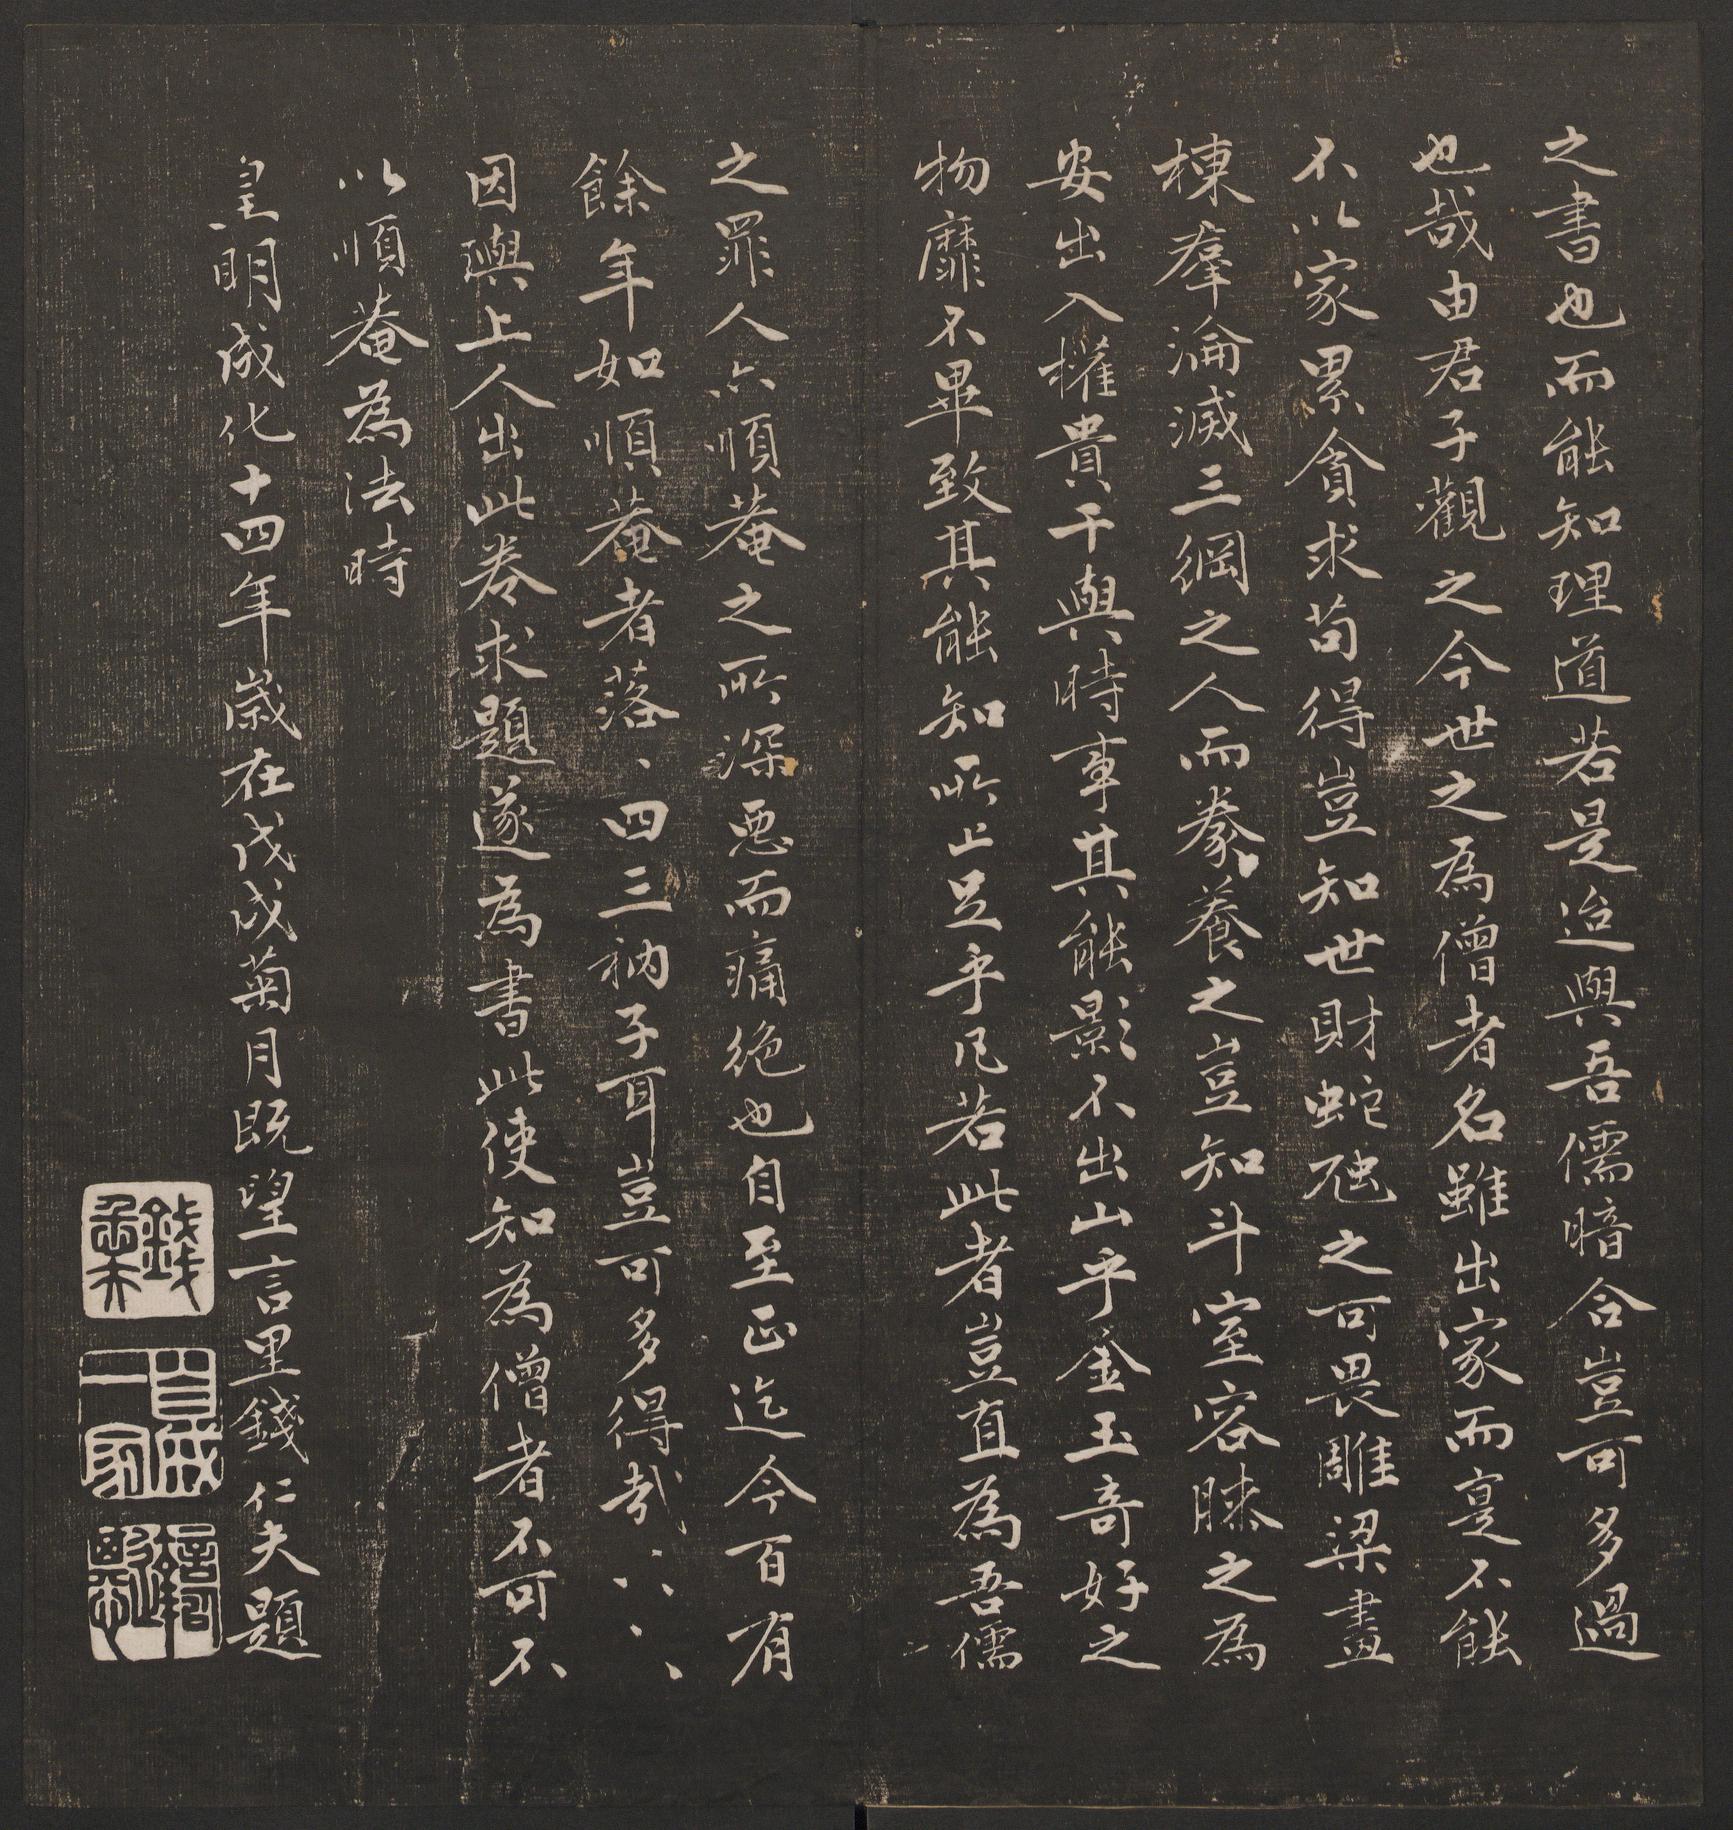 之書也而能知理道若是迨與吾儒暗合豈可多過
也哉由君子觀之今世之為僧者名雖出家而寔不能
不以家累貪求苟得豈知世財蛇虺之可畏雕梁畫
棟羣淪滅三綱之人而豢養之豈知斗室容膝之為
安出入權貴干與時事其能影不出山乎金玉奇好之
物靡不畢致其能知所止足乎凡若此者豈直為吾儒
之罪人亦順菴之所深惡而痛絶也自至正迄今百有
餘年如順菴者落、四三衲子耳豈可多得哉豈可多得哉
因璵上人出此卷求題遂為書此使知為僧者不可不
以順菴為法時
皇明成化十四年歲在戊戌菊月既望言里錢仁夫題
錢
一家